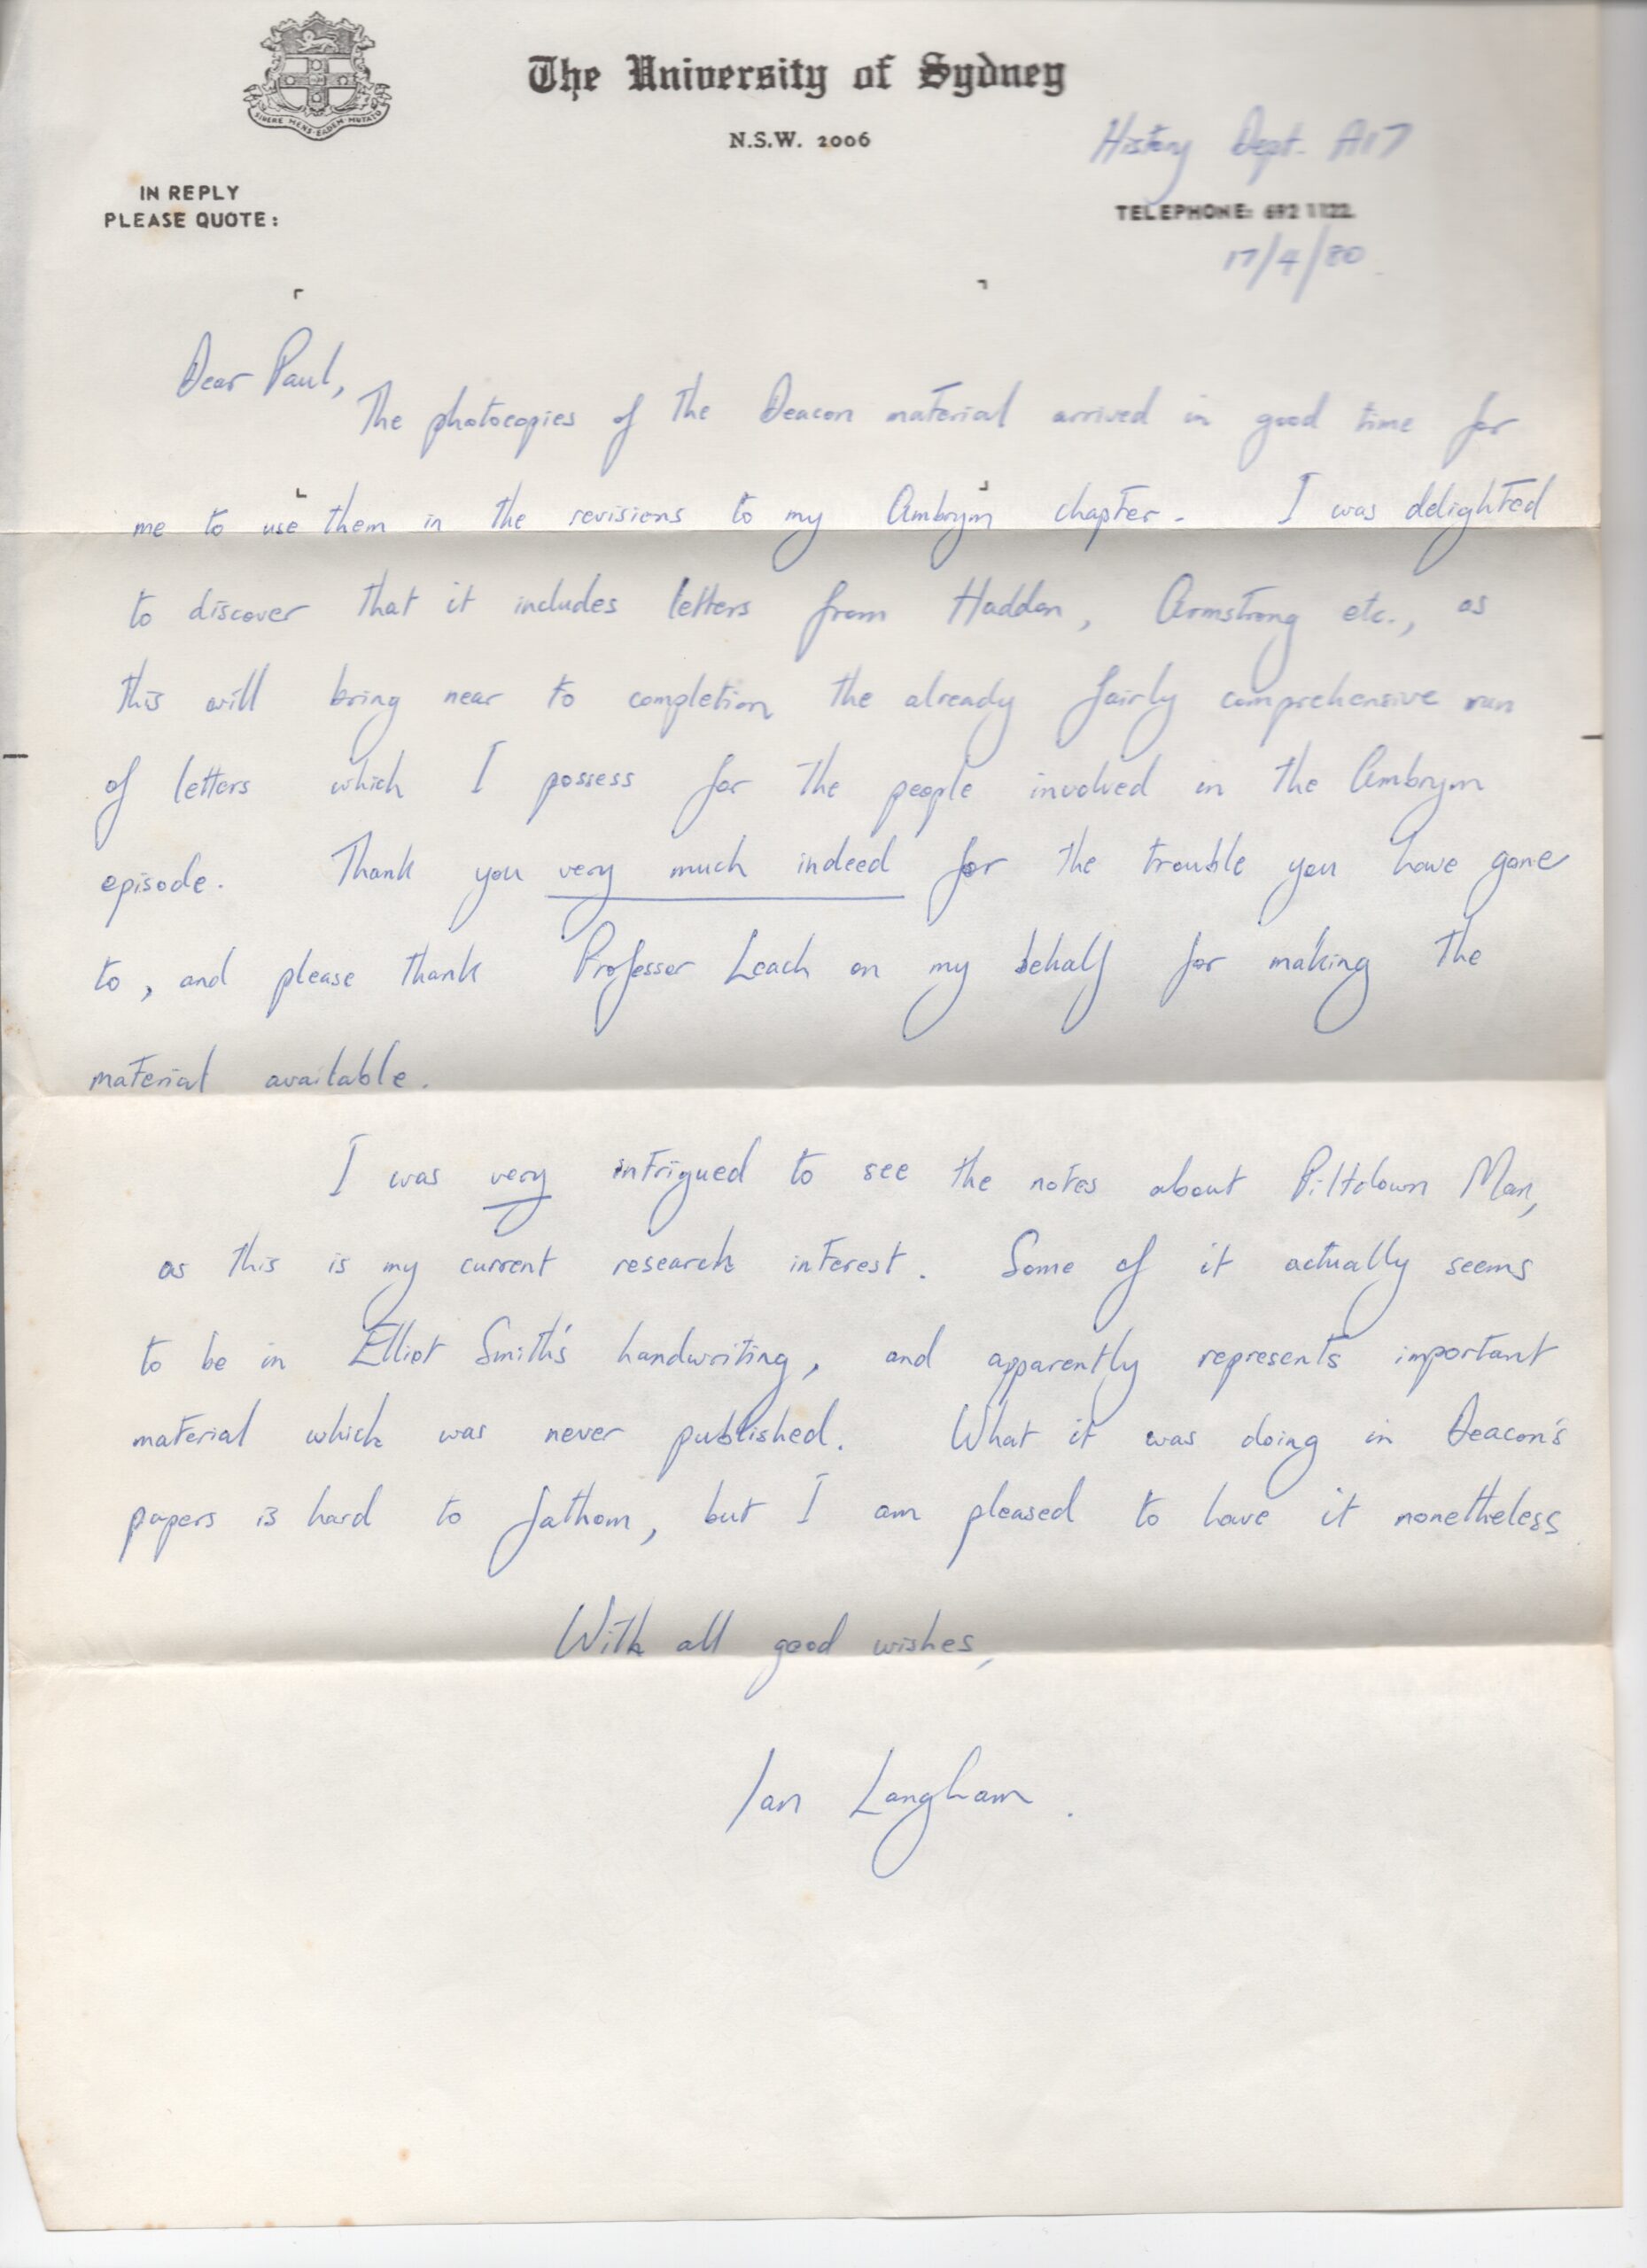 SIDERE·MENS·EADEM·MUTATO
The University of Sydney
N.S.W. 2006
History Dept. A17
IN REPLY
PLEASE QUOTE:
TELEPHONE: 692 1122
17/4/80
Dear Paul,
The photocopies of the Deacon material arrived in good time for
me to use them in the revisions to my Ambrym chapter. I was delighted
to discover that it includes letters from Haddon, Armstrong etc., as
this will bring near to completion the already fairly comprehensive run
of letters which I possess for the people involved in the Ambrym
episode. Thank you very much indeed for the trouble you have gone
to, and please thank Professor Leach on my behalf for making the
material available.
I was very intrigued to see the notes about Piltdown Man,
as this is my current research interest. Some of it actually seems
to be in Elliot Smith's handwriting, and apparently represents important
material which was never published. What it was doing in Deacon's
papers is hard to fathom, but I am pleased to have it nonetheless.
With all good wishes,
Ian Langham.